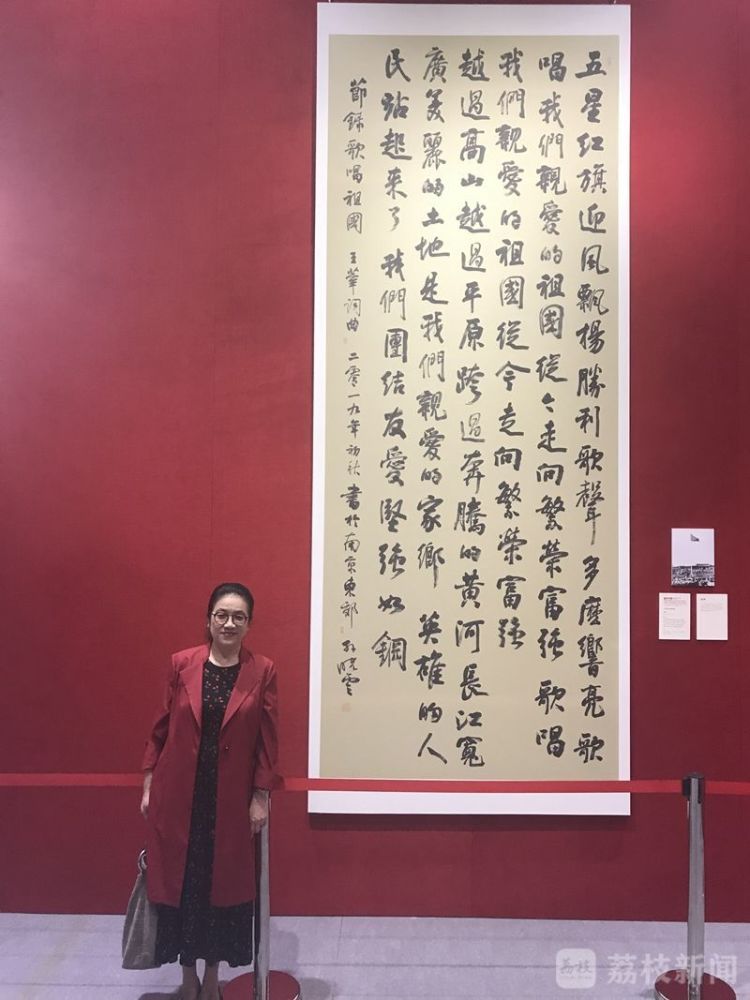 五星紅旗迎風飄揚勝利歌聲多麼響亮歌
唱我們親愛的祖國從今走向繁榮富強歌唱
我們親愛的祖國從今走向繁榮富強
越過高山越過平原跨過奔騰的黃河長江寬
廣美麗的土地是我們親愛的家鄉英雄的人
民站起來了我們團結友愛堅強如鋼
節錄歌唱祖國 王莘詞曲 二零一九年初秋 書於南京東郊 孫曉雲
荔枝 荔枝新闻